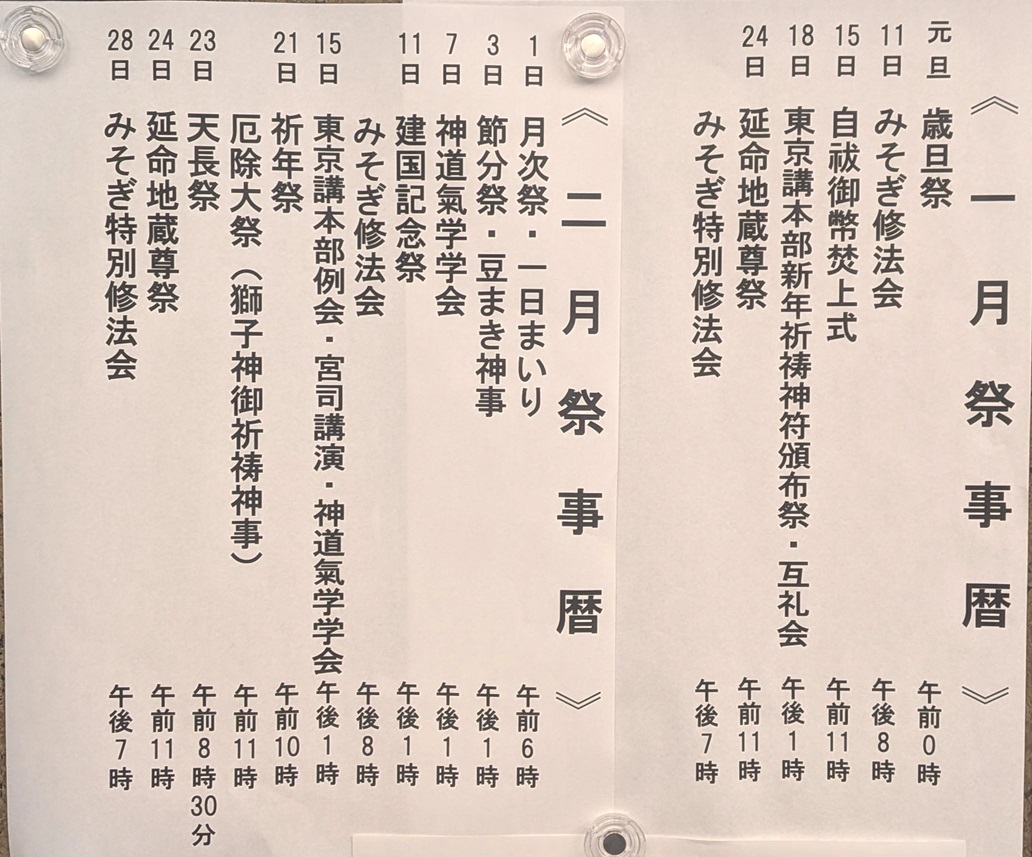 《一月祭事暦》
元旦 歳旦祭 午前0時
11日 みそぎ修法会 午後8時
15日 自祓御幣焚上式 午前11時
18日 東京講本部新年祈祷神符頒布祭・互礼会 午後1時
24日 延命地蔵尊祭 午前11時
みそぎ特別修法会 午後7時
《二月祭事暦》
1日 月次祭・一日まいり 午前6時
3日 節分祭・豆まき神事 午後1時
7日 神道氣学学会 午後1時
11日 建国記念祭 午後1時
みそぎ修法会 午後8時
15日 東京講本部例会・宮司講演・神道氣学学会 午後1時
21日 祈年祭 午前10時
厄除大祭（獅子神御祈祷神事） 午前11時
23日 天長祭 午前8時30分
24日 延命地蔵尊祭 午前11時
28日 みそぎ特別修法会 午後7時